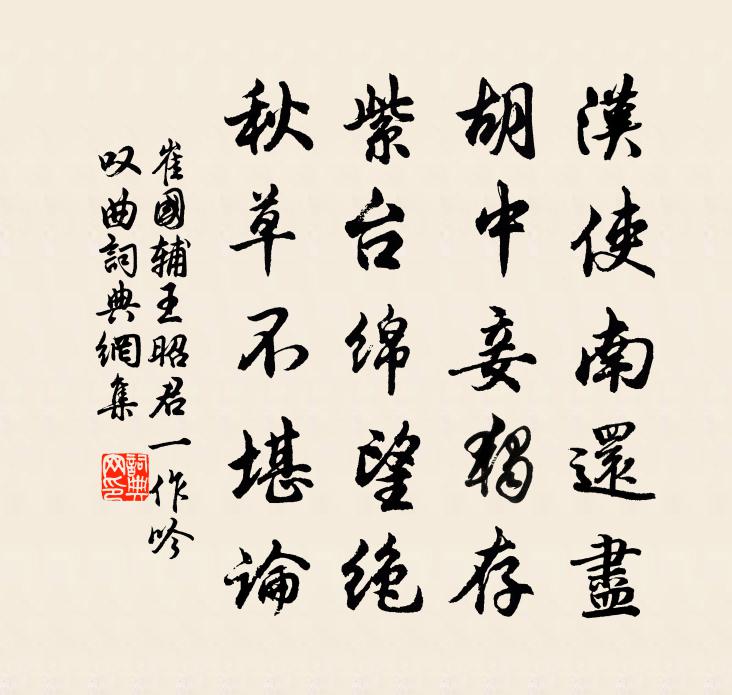 漢使南還盡
胡中妾獨存
紫台绵望绝
秋草不堪論
崔國輔王昭君一作吟
叹曲詞典網集
詞典
网印